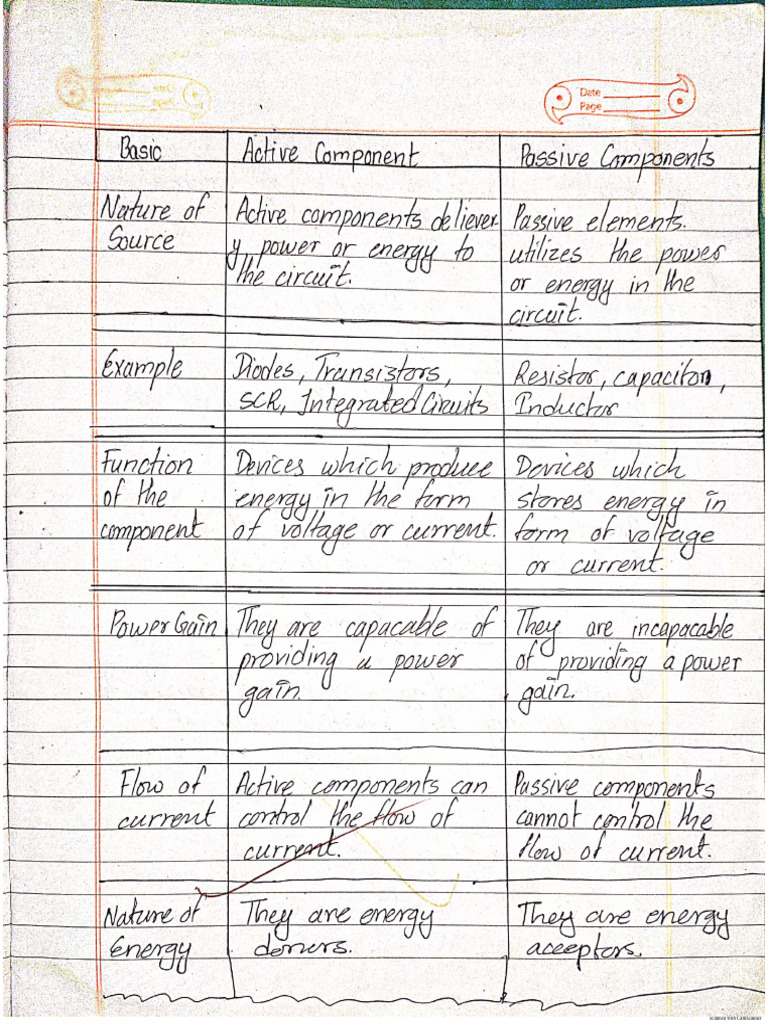 Date
Page
Basic
Active Component
Passive Components
Nature of
Source
Active components deliever
y power or energy to
the circuit.
Passive elements.
utilizes the power
or energy in the
circuit.
Example
Diodes, Transistors,
SCR, Integrated Ciruits
Resistor, capacitor,
Inductor
Function
of the
component
Devices which produce
energy in the form
of voltage or current.
Devices which
stores energy in
form of voltage
or current.
Power Gain
They are capacable of
providing a power
gain.
They are incapacable
of providing a power
gain.
Flow of
current
Active components can
control the flow of
current.
Passive components
cannot control the
flow of current.
Nature of
Energy
They are energy
doners.
They are energy
aceeptors.